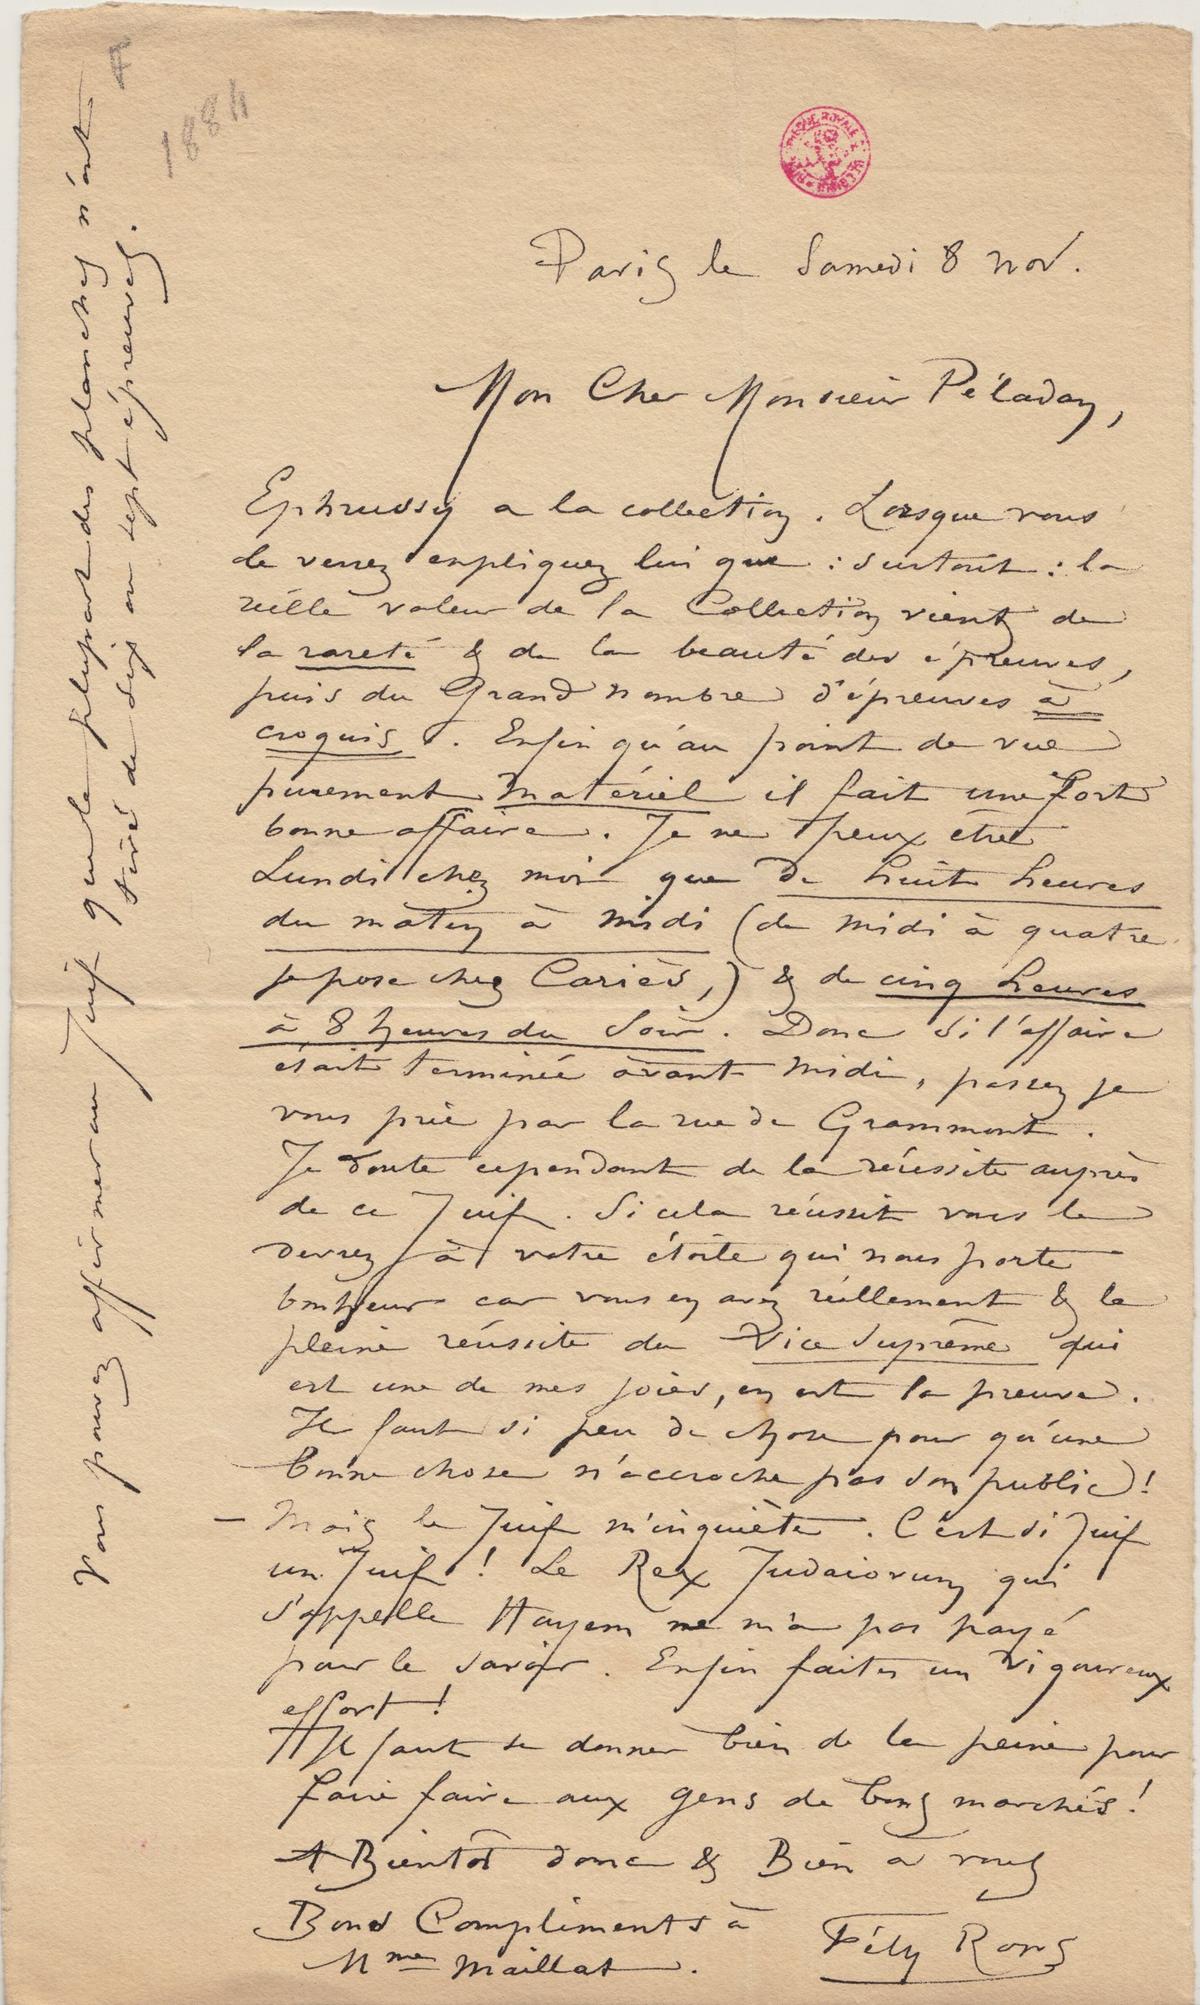 F
1884
Paris le Samedi 8 nov.
Mon Cher Monsieur Péladan,
Ephrussy a la collection. Lorsque vous
le verrez expliquez lui que : surtout : la
réelle valeur de la Collection vient de
la rareté & de la beauté des épreuves,
puis du Grand nombre d'épreuves à
croquis. Enfin qu'au point de vue
purement matériel il fait une fort
bonne affaire. Je ne peux être
Lundi chez moi que de huit heures
du matin à midi (de midi à quatre
je pose chez Cariès,) & de cinq heures
à 8 heures du Soir. Donc si l'affaire
était terminée avant midi, passez je
vous prie par la rue de Grammont.
Je doute cependant de la réussite auprès
de ce Juif. Si cela réussit vous le
devrez à votre étoile qui nous porte
bonheur car vous en avez réellement & la
pleine réussite du Vice Suprême qui
est une de mes joies, en est la preuve.
Il faut si peu de chose pour qu'une
bonne chose n'accroche pas son public !
– Mais le Juif m'inquiète. C'est si Juif
un Juif ! Le Rex Judaiorum qui
s'appelle Hayem ne m'a pas payé
pour le savoir. Enfin faites un vigoureux
effort !
Il faut se donner bien de la peine pour
faire faire aux gens de bons marchés !
A Bientôt donc & Bien à vous
Bons Compliments à
Mme Maillat.
Fély Rops
Vous pouvez affirmer au Juif que la plupart des planches n'ont
tiré de six ou sept épreuves.